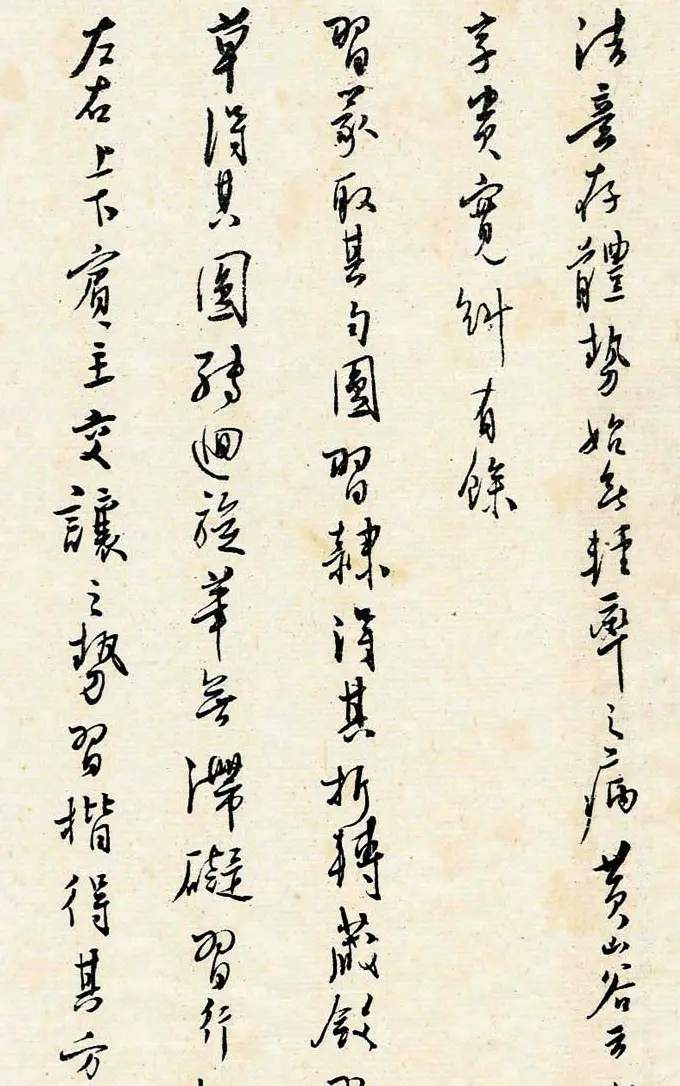 法意存體勢始無輕率之病黃山谷云
字貴寬綽有餘
習篆取其勻圓習隸得其折轉藏斂
草得其圓轉迴旋筆無滯礙習行
左右上下賓主交讓之勢習楷得其方